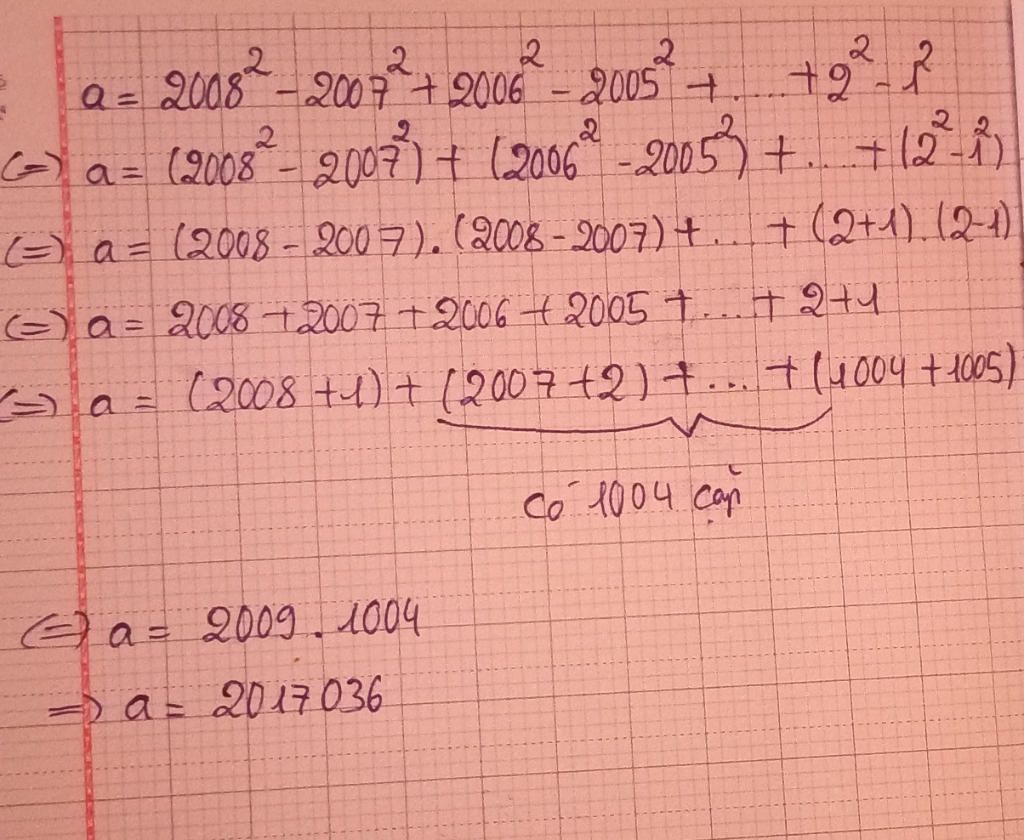 a = 2008² - 2007² + 2006² - 2005² + .... + 2² - 1²
(=) a = (2008² - 2007²) + (2006² - 2005²) + ... + (2² - 1²)
(=) a = (2008 - 2007).(2008 - 2007) + ... + (2+1).(2-1)
(=) a = 2008 + 2007 + 2006 + 2005 + ... + 2+1
(=) a = (2008 + 1) + (2007 + 2) + ... + (1004 + 1005)
Có 1004 cặp
(=) a = 2009 . 1004
=> a = 2017036